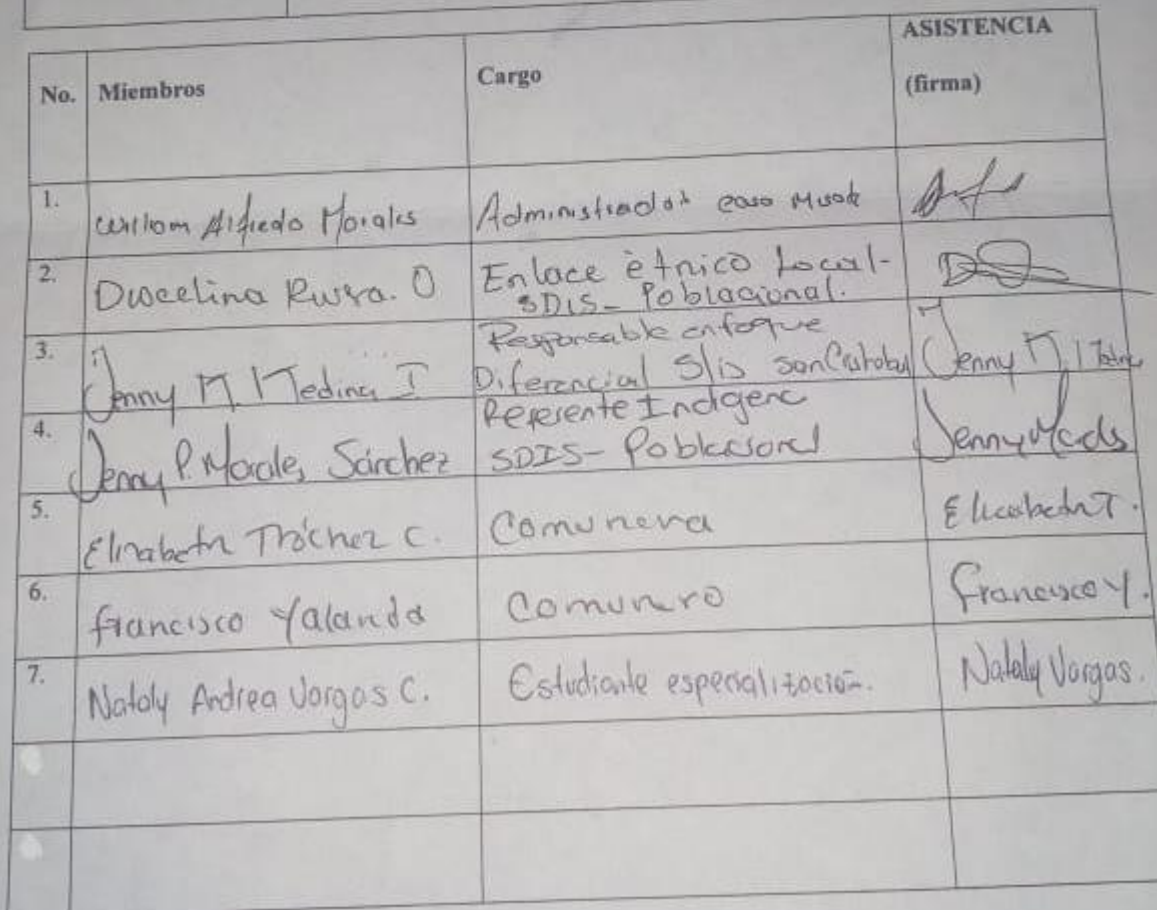 No. Miembros Cargo ASISTENCIA
(firma)
1. William Alfredo Morales Administrador casa
2. Rivera. O Enlace ètnico Local-
SDIS- Poblacional.
3. Jenny M Medina I Responsable enfoque
Diferencial Slis san Cristobal Jenny M
4. Jenny P. Morales Sánchez Referente Indigena
SDIS- Poblacional Jenny
5. Elizabeth Tróchez C. Comunera Elizabeth T.
6. francisco Yalanda Comunero Francisco Y.
7. Nataly Andrea Vargas C. Estudiante especialización. Nataly Vargas.